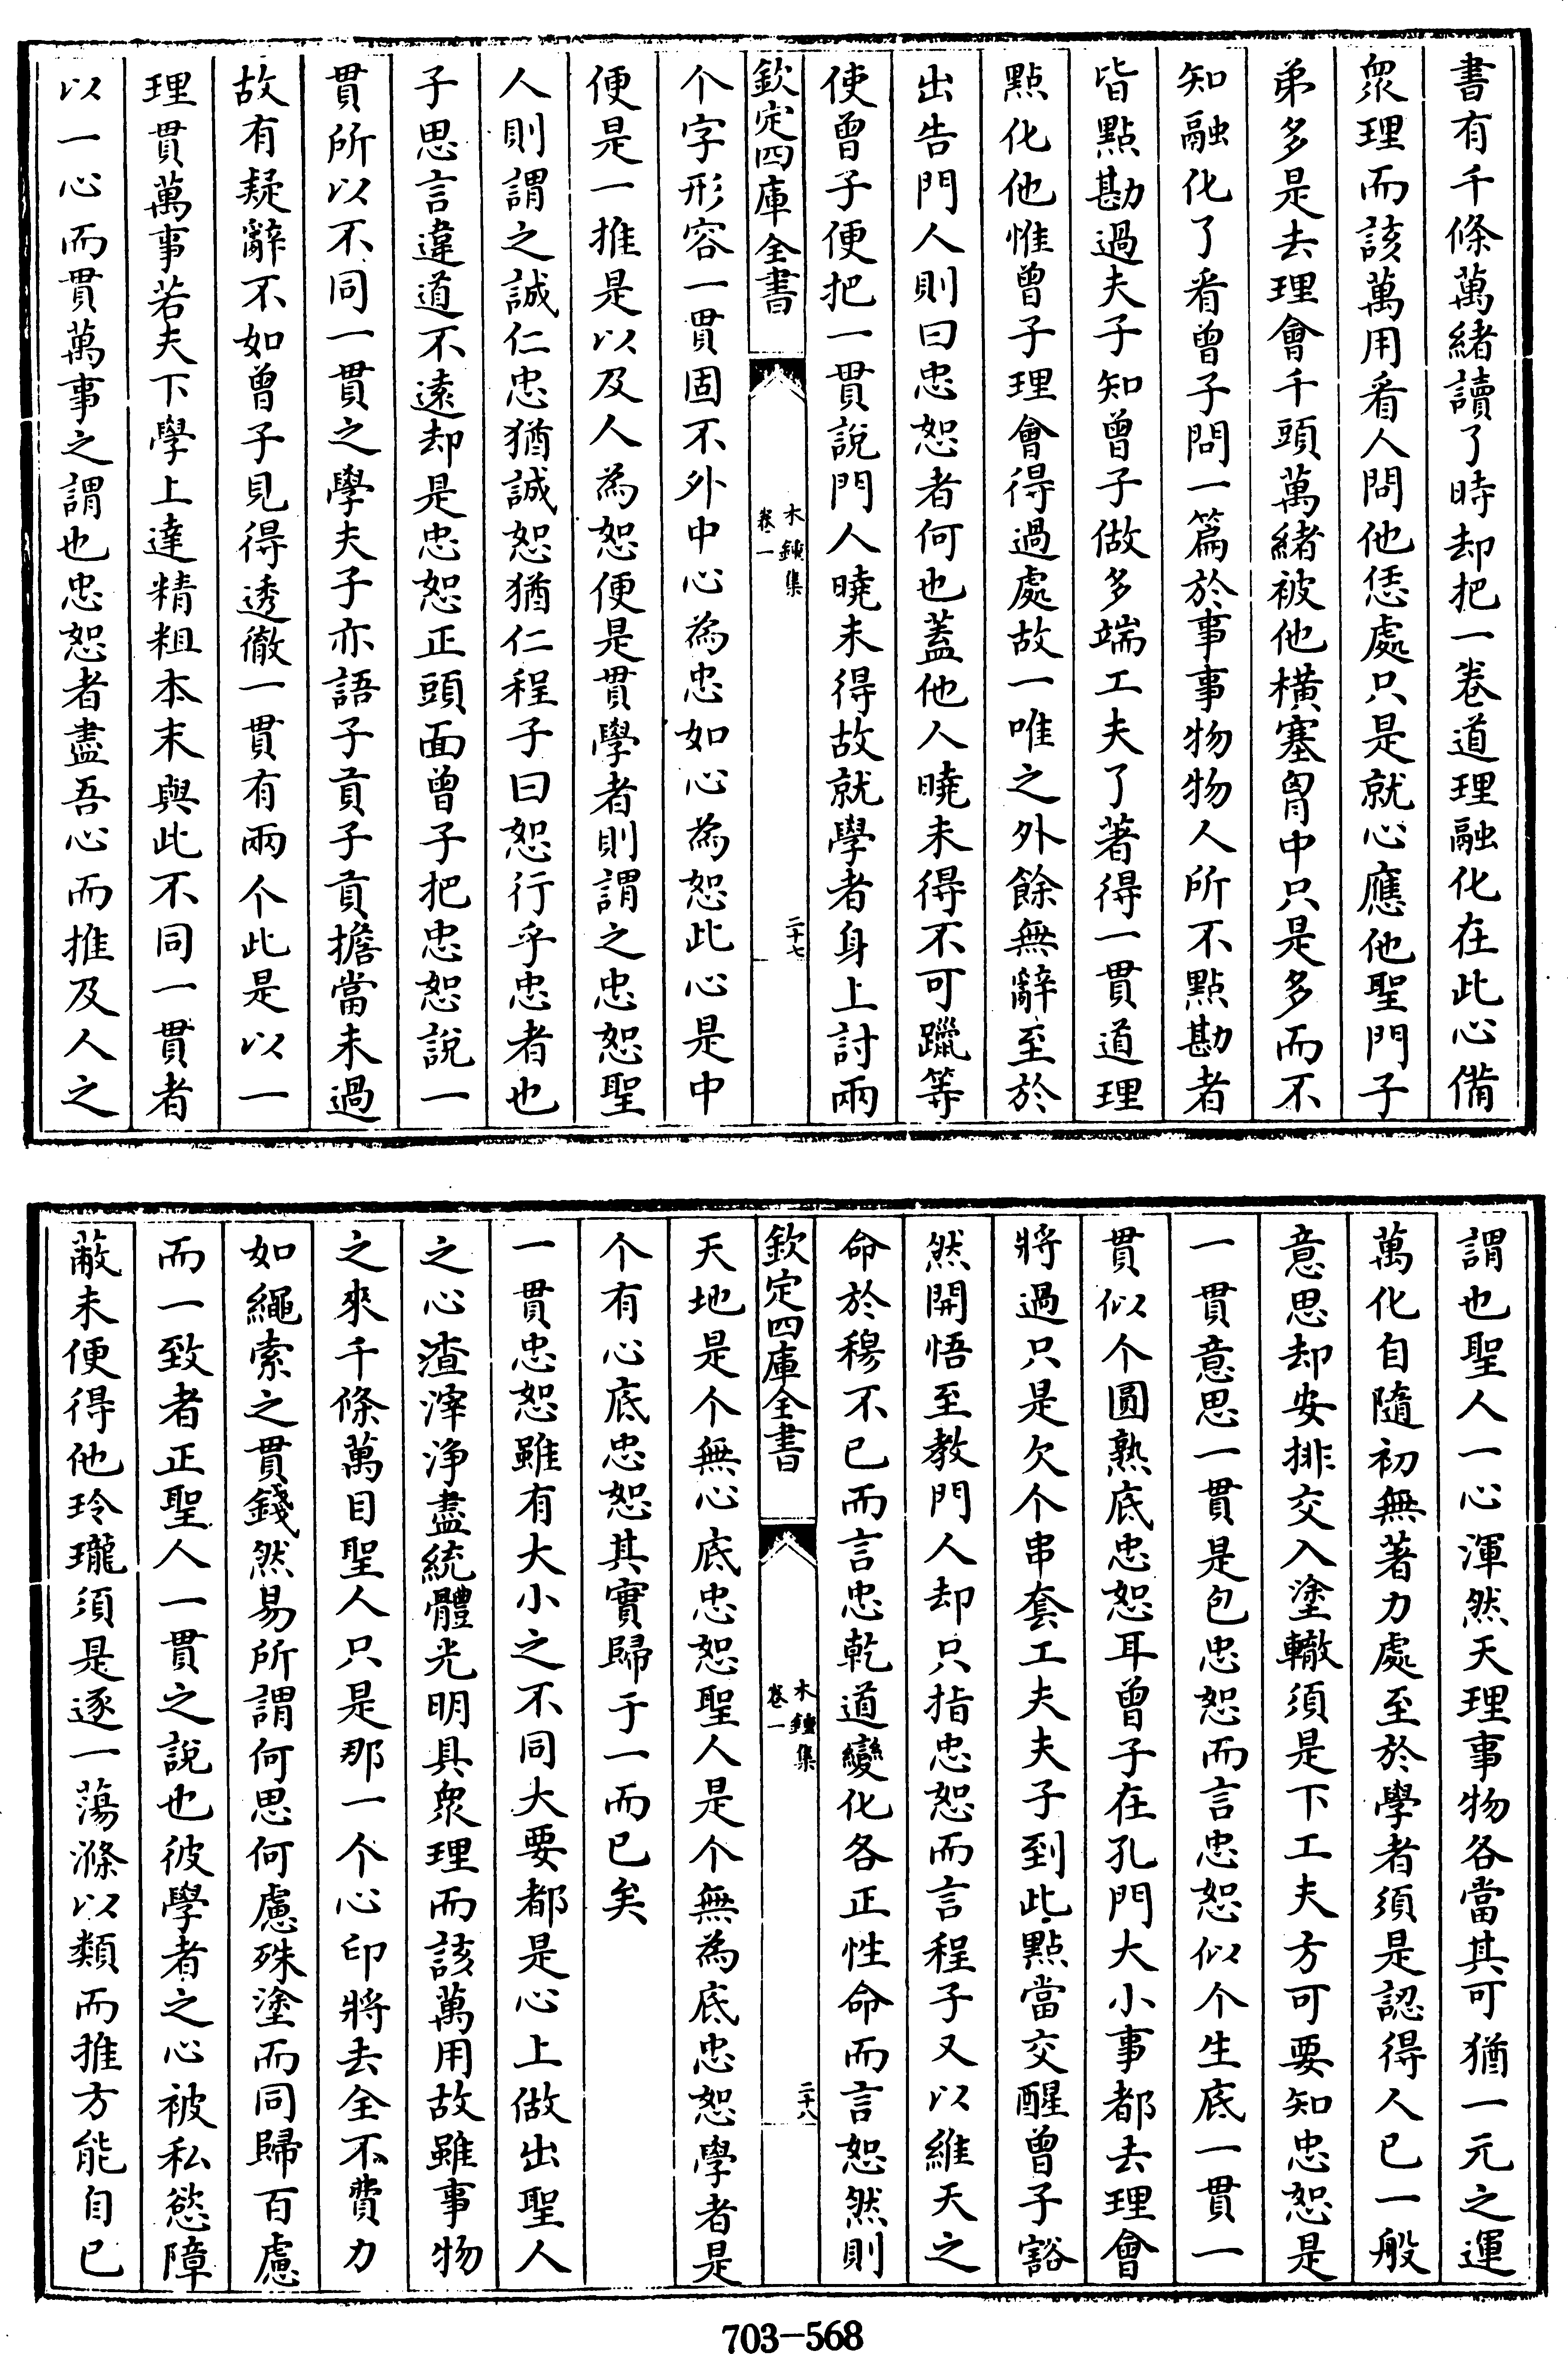 書有千條萬緒讀了時却把一卷道理融化在此心備
衆理而該萬用看人問他恁處只是就心應他聖門子
弟多是去理會千頭萬緒被他橫塞胷中只是多而不
知融化了看曾子問一篇於事事物物人所不點勘者
皆點勘過夫子知曾子做多端工夫了著得一貫道理
點化他惟曾子理會得過處故一唯之外餘無辭至於
出告門人則曰忠恕者何也蓋他人曉未得不可躐等
使曾子便把一貫說門人曉未得故就學者身上討兩
欽定四庫全書
木鍾集
卷一
二十七
个字形容一貫固不外中心為忠如心為恕此心是中
便是一推是以及人為恕便是貫學者則謂之忠恕聖
人則謂之誠仁忠猶誠恕猶仁程子曰恕行乎忠者也
子思言違道不遠却是忠恕正頭面曾子把忠恕說一
貫所以不同一貫之學夫子亦語子貢子貢擔當未過
故有疑辭不如曾子見得透徹一貫有兩个此是以一
理貫萬事若夫下學上達精粗本末與此不同一貫者
以一心而貫萬事之謂也忠恕者盡吾心而推及人之
謂也聖人一心渾然天理事物各當其可猶一元之運
萬化自隨初無著力處至於學者須是認得人已一般
意思却安排交入塗轍須是下工夫方可要知忠恕是
一貫意思一貫是包忠恕而言忠恕似个生底一貫一
貫似个圓熟底忠恕耳曾子在孔門大小事都去理會
將過只是欠个串套工夫夫子到此點當交醒曾子豁
然開悟至教門人却只指忠恕而言程子又以維天之
命於穆不已而言忠乾道變化各正性命而言恕然則
欽定四庫全書
木鍾集
卷一
二十八
天地是个無心底忠恕聖人是个無為底忠恕學者是
个有心底忠恕其實歸于一而已矣
一貫忠恕雖有大小之不同大要都是心上做出聖人
之心渣滓淨盡統體光明具衆理而該萬用故雖事物
之來千條萬目聖人只是那一个心印將去全不費力
如繩索之貫錢然易所謂何思何慮殊塗而同歸百慮
而一致者正聖人一貫之說也彼學者之心被私慾障
蔽未便得他玲瓏須是逐一蕩滌以類而推方能自已
703-568